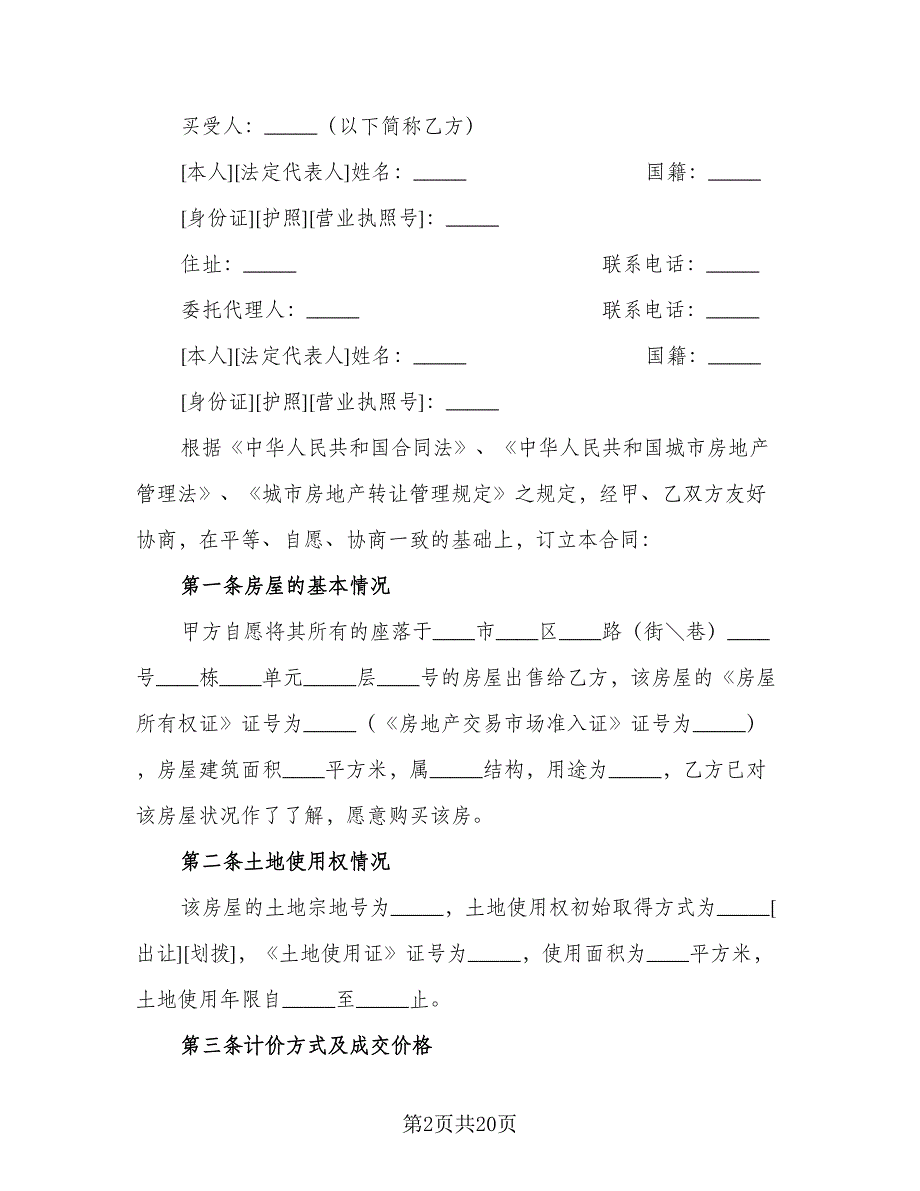 买受人：_____（以下简称乙方）
[本人][法定代表人]姓名：_____ 国籍：_____
[身份证][护照][营业执照号]：_____
住址：_____ 联系电话：_____
委托代理人：_____ 联系电话：_____
[本人][法定代表人]姓名：_____ 国籍：_____
[身份证][护照][营业执照号]：_____
根据《中华人民共和国合同法》、《中华人民共和国城市房地产
管理法》、《城市房地产转让管理规定》之规定，经甲、乙双方友好
协商，在平等、自愿、协商一致的基础上，订立本合同：
第一条房屋的基本情况
甲方自愿将其所有的座落于____市____区____路（街＼巷）____
号____栋____单元_____层____号的房屋出售给乙方，该房屋的《房屋
所有权证》证号为_____（《房地产交易市场准入证》证号为_____）
，房屋建筑面积____平方米，属_____结构，用途为_____，乙方已对
该房屋状况作了了解，愿意购买该房。
第二条土地使用权情况
该房屋的土地宗地号为_____，土地使用权初始取得方式为_____[
出让][划拨]，《土地使用证》证号为_____，使用面积为____平方米，
土地使用年限自_____至_____止。
第三条计价方式及成交价格
第2页共20页